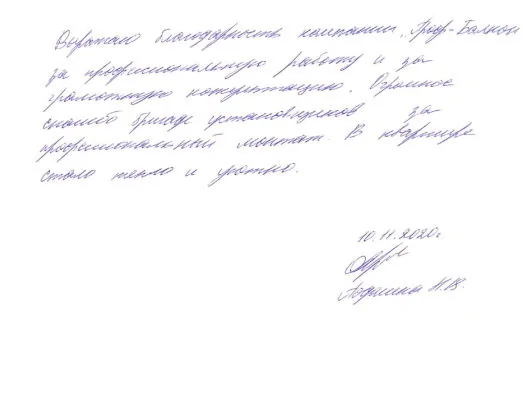 Выражаю благодарность компании "Проф-Балкон
за профисиональную работу и за
грамотную консультацию. Огромное
спасибо бригаде установщиков за
профессиональный монтаж. В квартире
стало тепло и уютно.
10.11.2020г
Н.В.